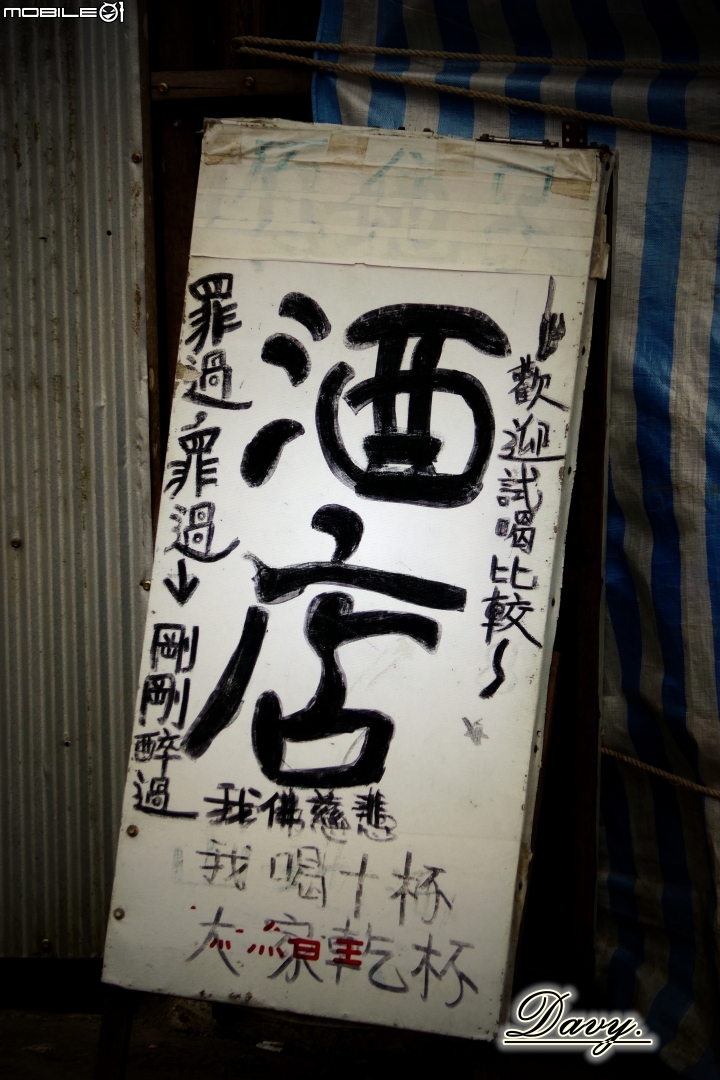 MOBILE01
歡迎試喝比較~
酒店
罪過,罪過→剛剛醉過
我佛慈悲
我喝十杯
大家乾杯
Davy.